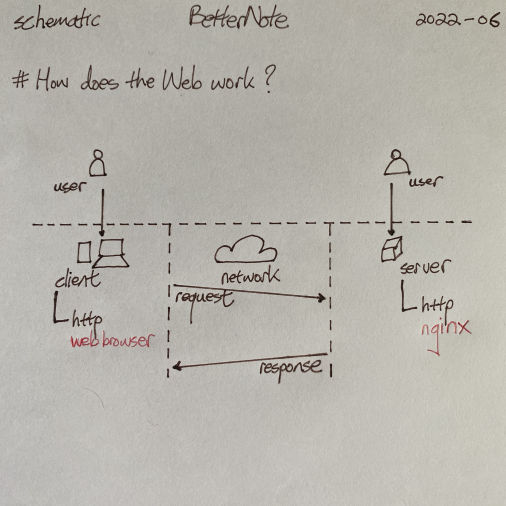 schematic BetterNote 2022-06
# How does the Web work?
user user
client network server
request
http http
web browser nginx
response